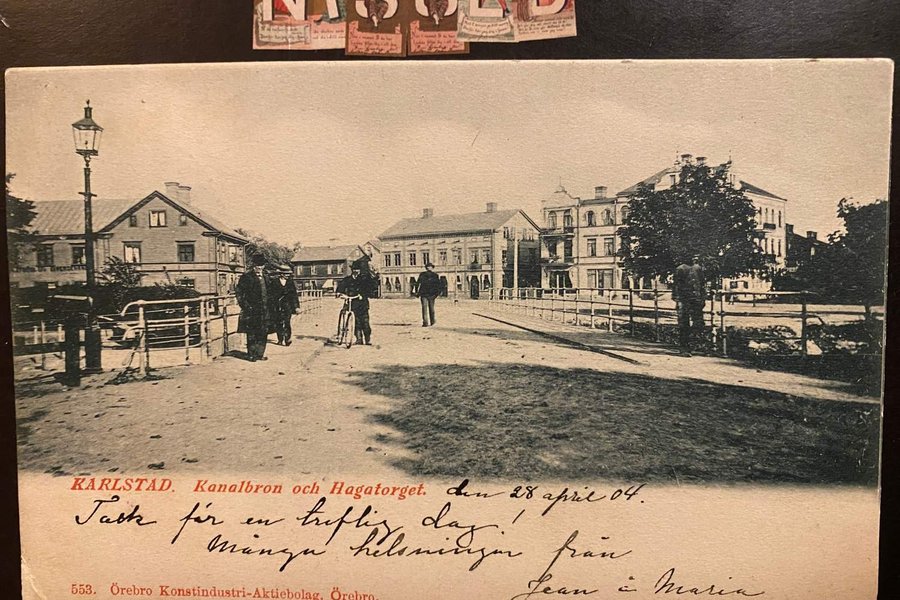 KARLSTAD. Kanalbron och Hagatorget. den 28 april 04.
Tack för en treflig dag!
Många helsningar från
Jean å Maria
553. Örebro Konstindustri-Aktiebolag, Örebro.